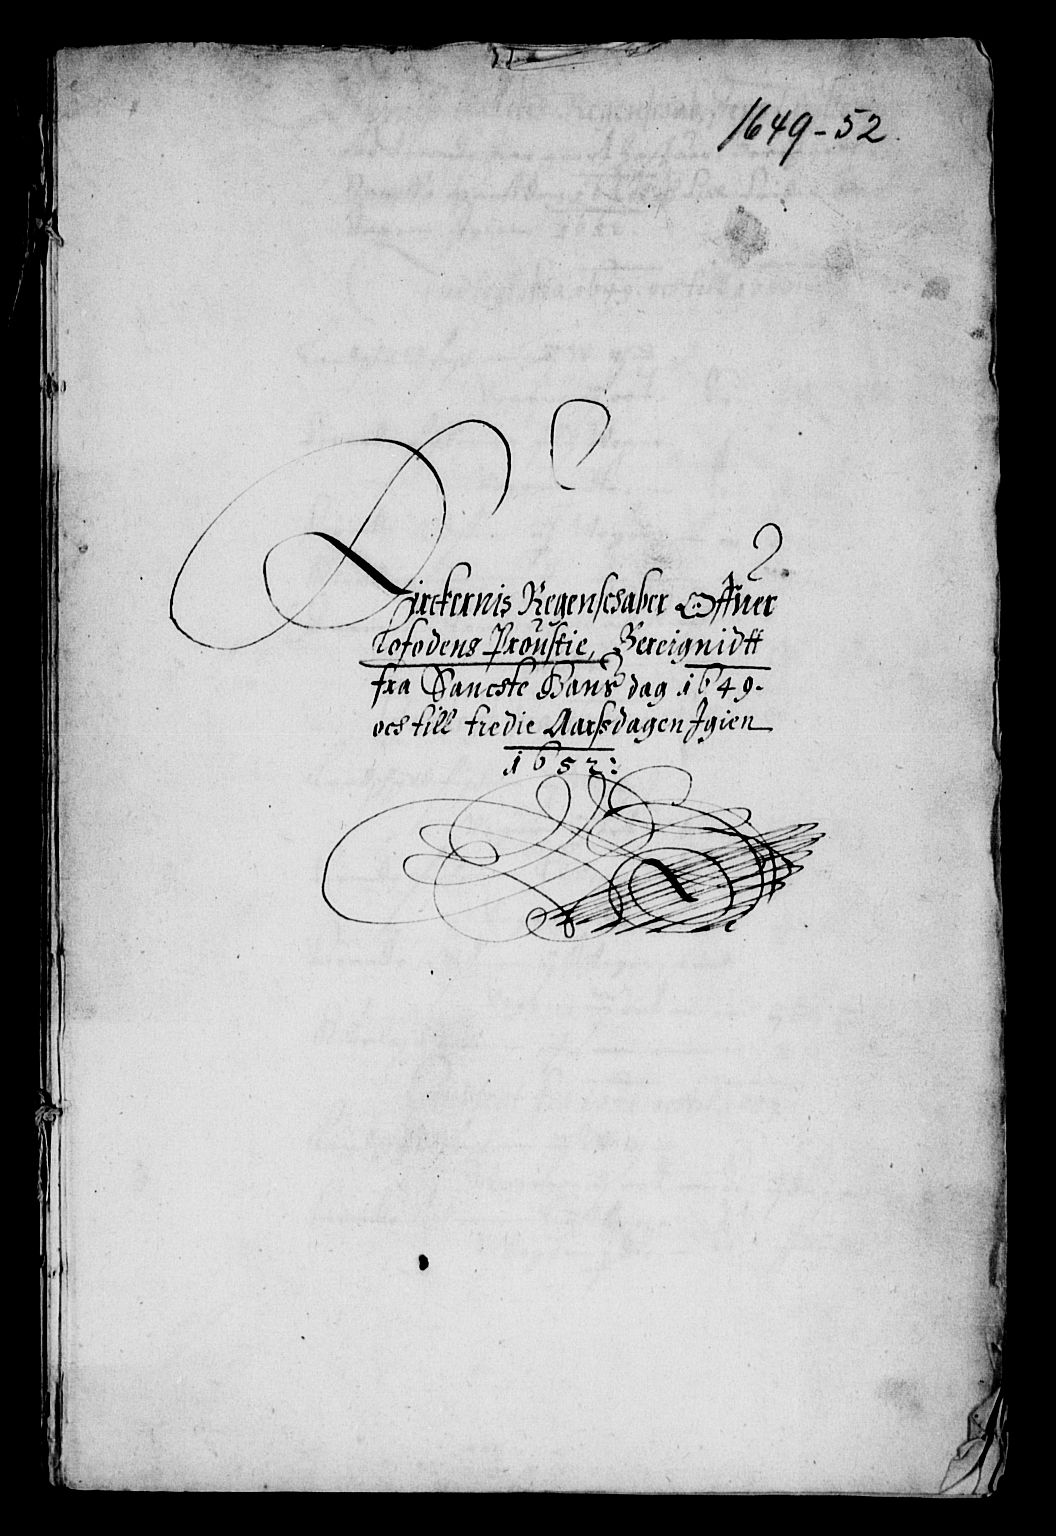 1649-52.
Kirckernis Regenschaber Offuer
Lofodens Proustie, Bereignidtt
fra Sancste Hanß dag 1649.
och till tredie Aarßdagen Igien
1652: